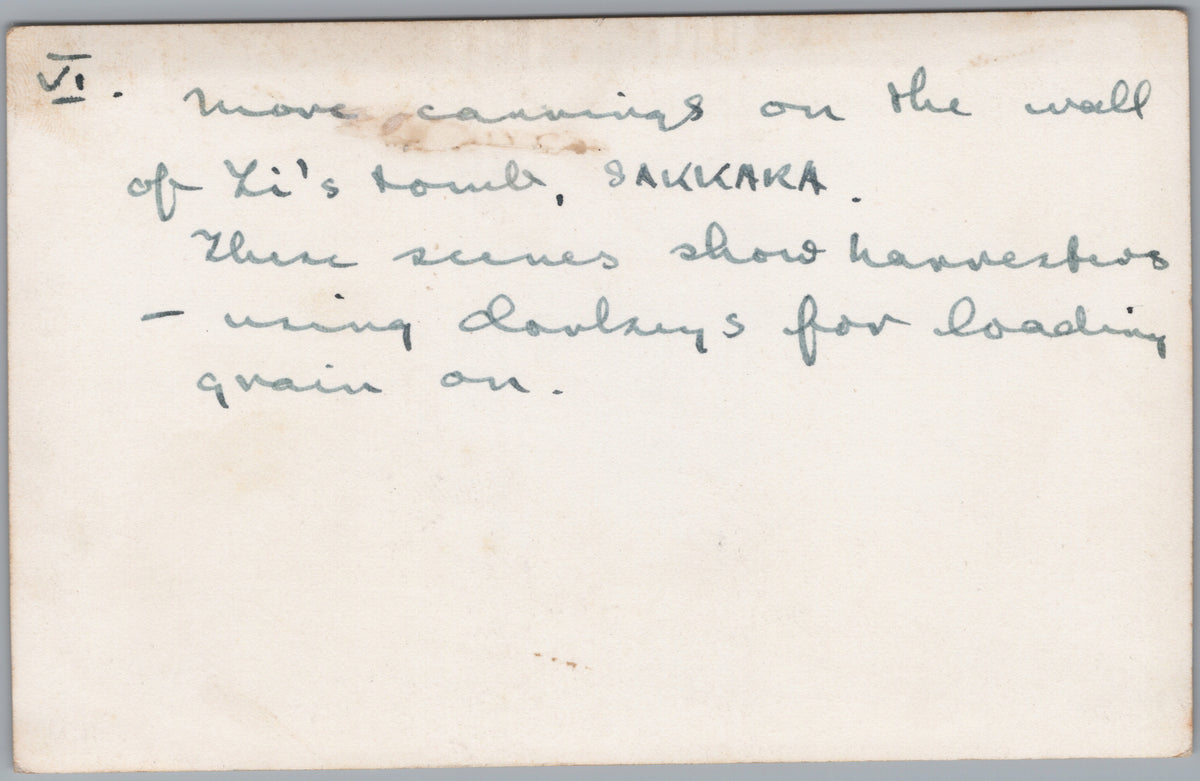 VI. More carvings on the wall
of Ti's tomb, SAKKAKA.
These scenes show harvesters
- using donkeys for loading
grain on.